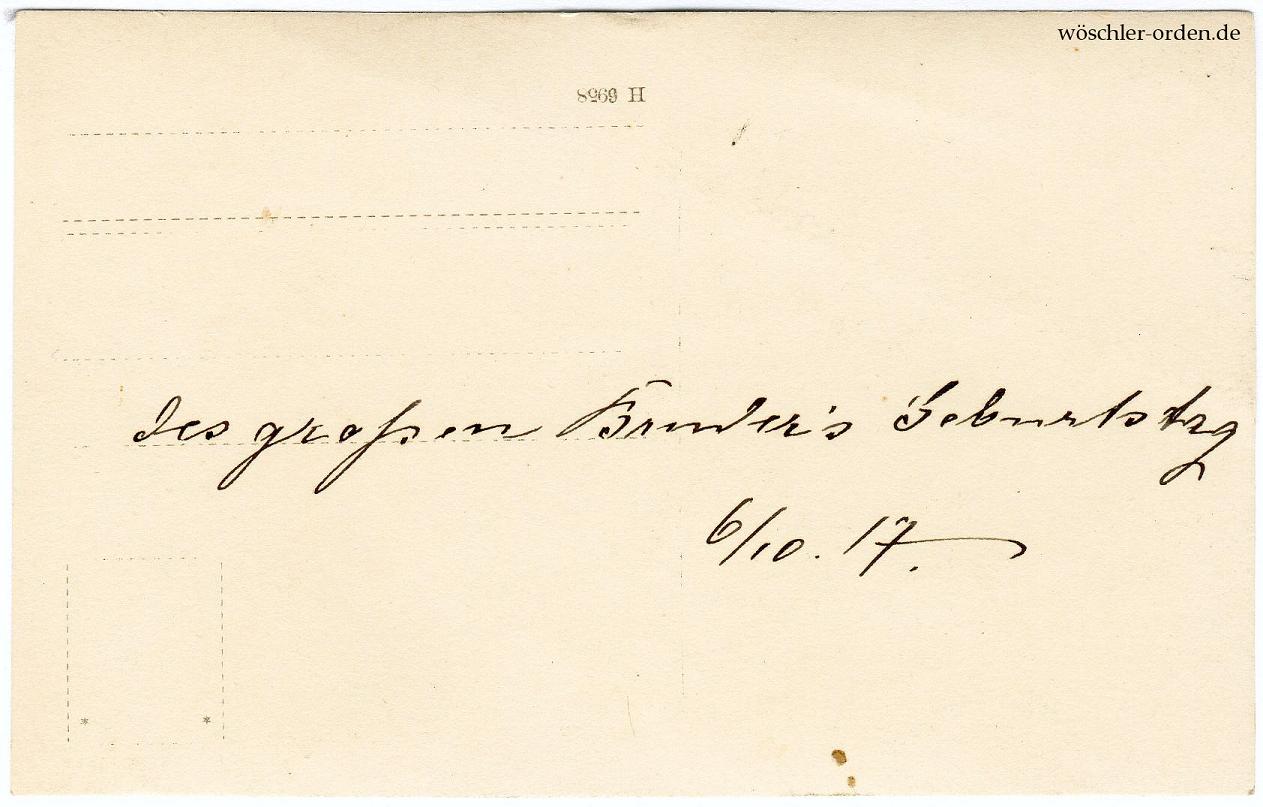 wöschler-orden.de
H 6958
des großen Bruder's Geburtstag
6/10. 17.